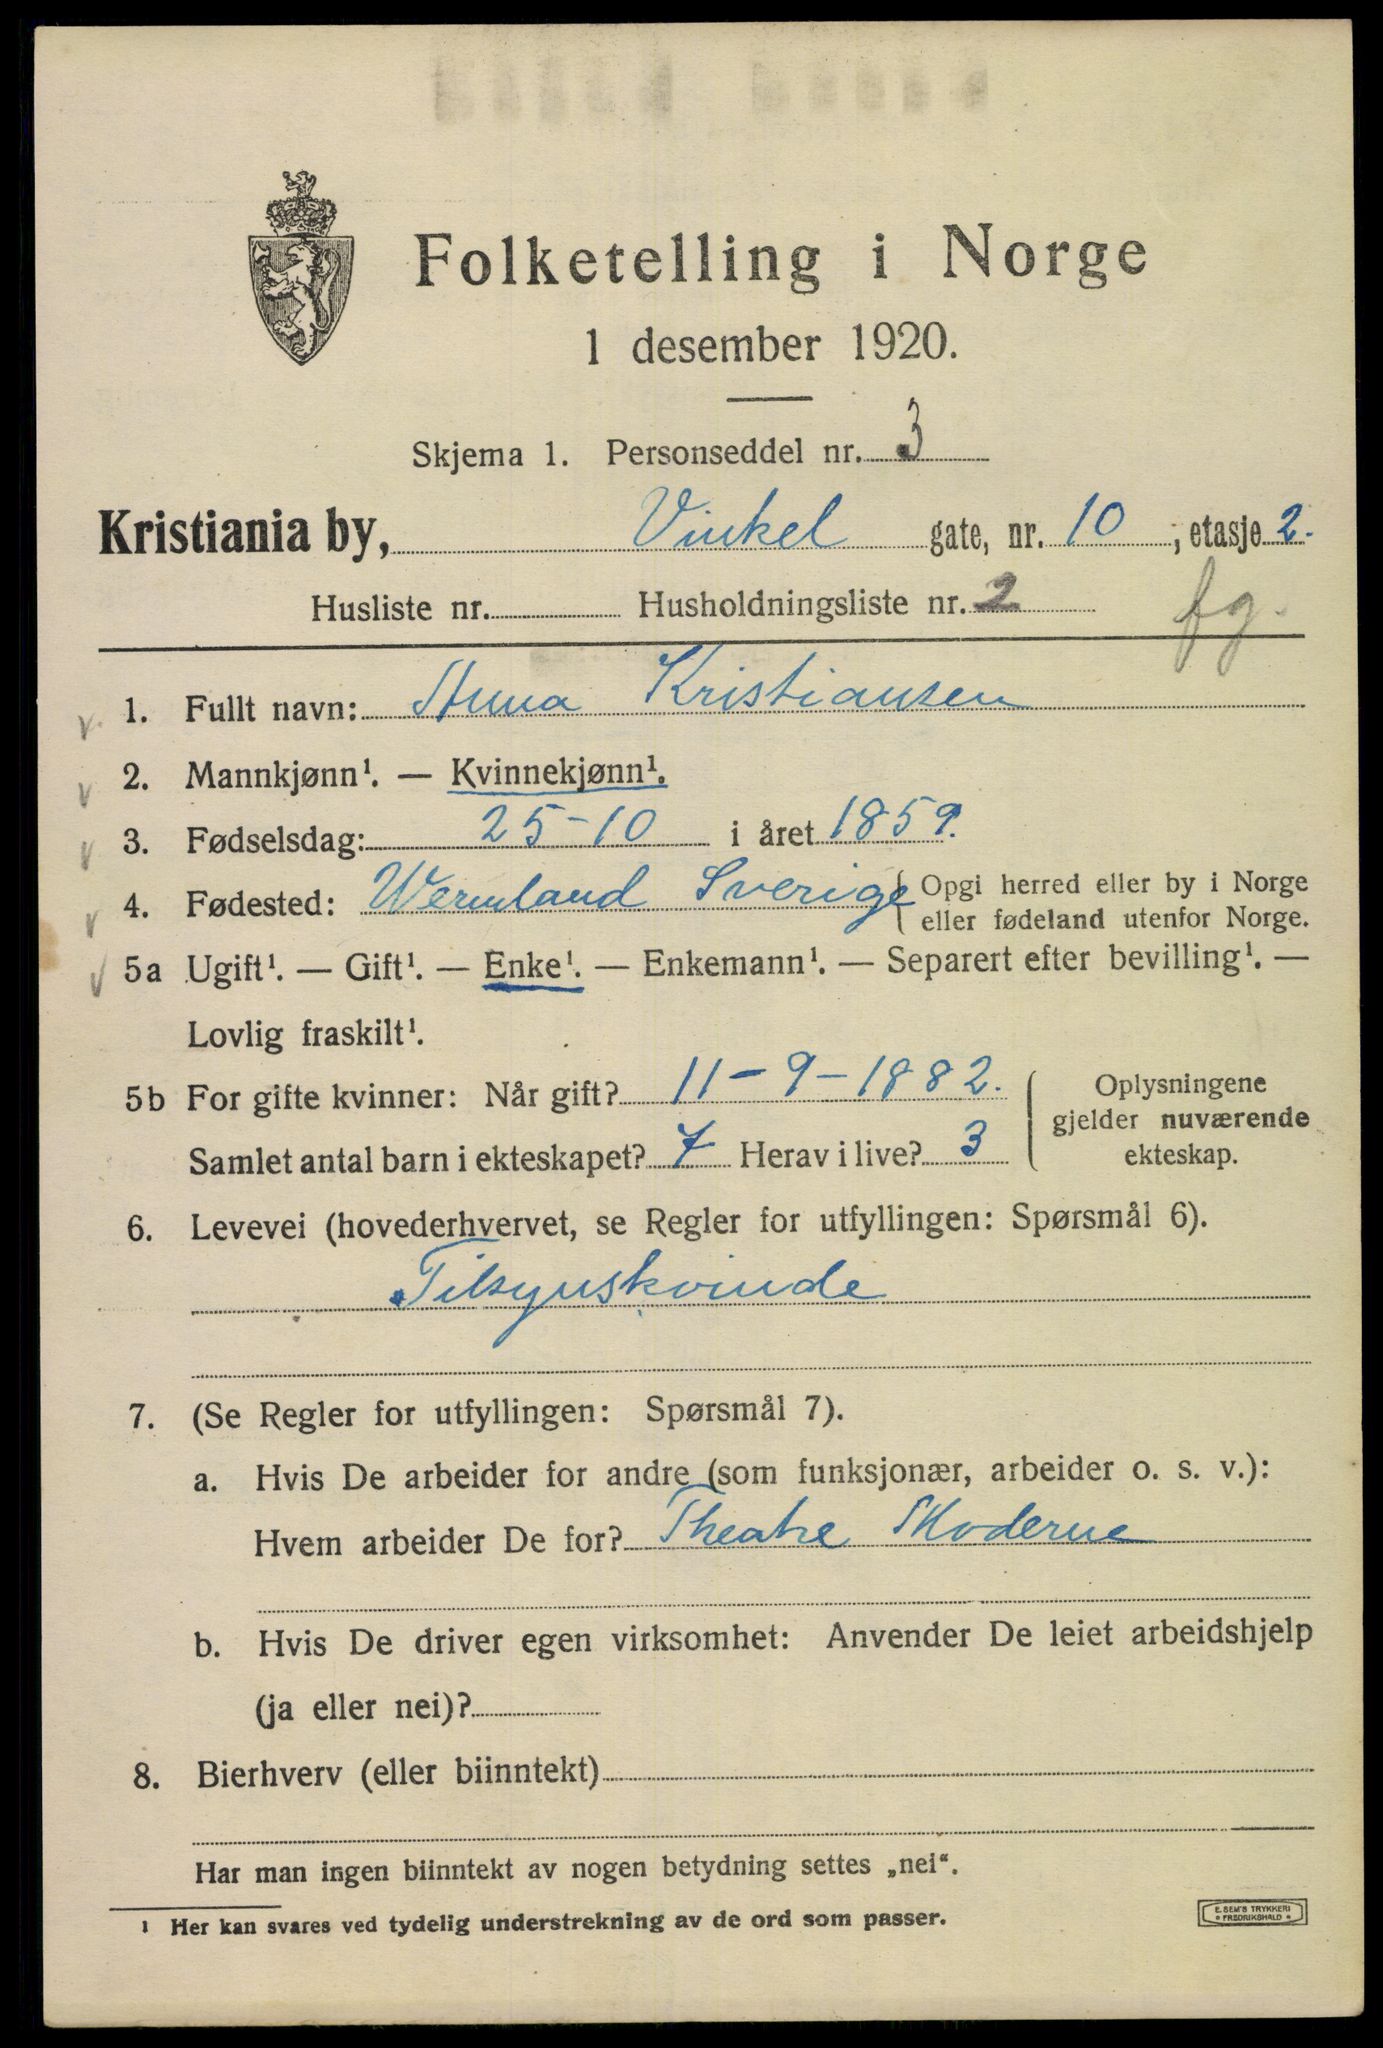 Folketelling i Norge
1 desember 1920.
Skjema 1. Personseddel nr. 3
Kristiania by, Vinkel gate, nr. 10, etasje 2.
Husliste nr. Husholdningsliste nr. 2 fg.
1. Fullt navn: Anna Kristiansen
2. Mannkjønn¹. — Kvinnekjønn¹.
3. Fødselsdag: 25-10 i året 1859.
4. Fødested: Wermland Sverige { Opgi herred eller by i Norge
eller fødeland utenfor Norge.
5a Ugift¹. — Gift¹. — Enke¹. — Enkemann¹. — Separert efter bevilling¹. —
Lovlig fraskilt¹.
5b For gifte kvinner: Når gift? 11-9-1882. { Oplysningene
gjelder nuværende
Samlet antal barn i ekteskapet? 7 Herav i live? 3 ekteskap.
6. Levevei (hovederhvervet, se Regler for utfyllingen: Spørsmål 6).
Tilsynskvinde
7. (Se Regler for utfyllingen: Spørsmål 7).
a. Hvis De arbeider for andre (som funksjonær, arbeider o. s. v.):
Hvem arbeider De for? Theatre Moderne
b. Hvis De driver egen virksomhet: Anvender De leiet arbeidshjelp
(ja eller nei)?
8. Bierhverv (eller biinntekt)
Har man ingen biinntekt av nogen betydning settes „nei“.
¹ Her kan svares ved tydelig understrekning av de ord som passer.
E. SEM'S TRYKKERI
* FREDRIKSHALD *